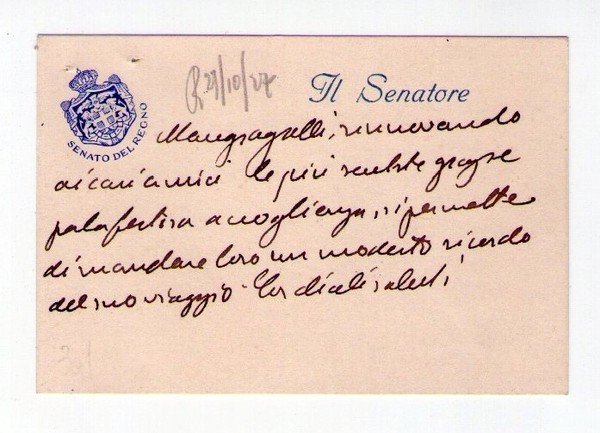 R 29/10/27
Il Senatore
SENATO DEL REGNO
Mangiagalli, rinnovando
ai cari amici le più sentite grazie
per la festosa accoglienza, si permette
di mandare loro un modesto ricordo
del suo viaggio. Cordiali saluti